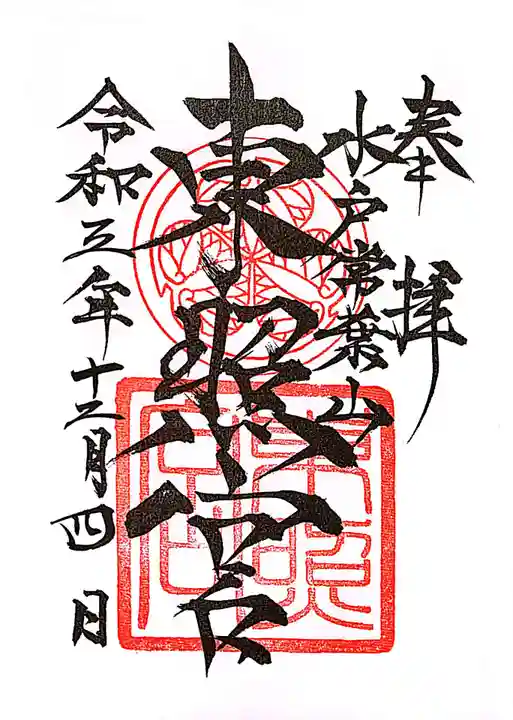 奉拝
水戸常葉山
東照宮
令和三年十二月四日
東照宮